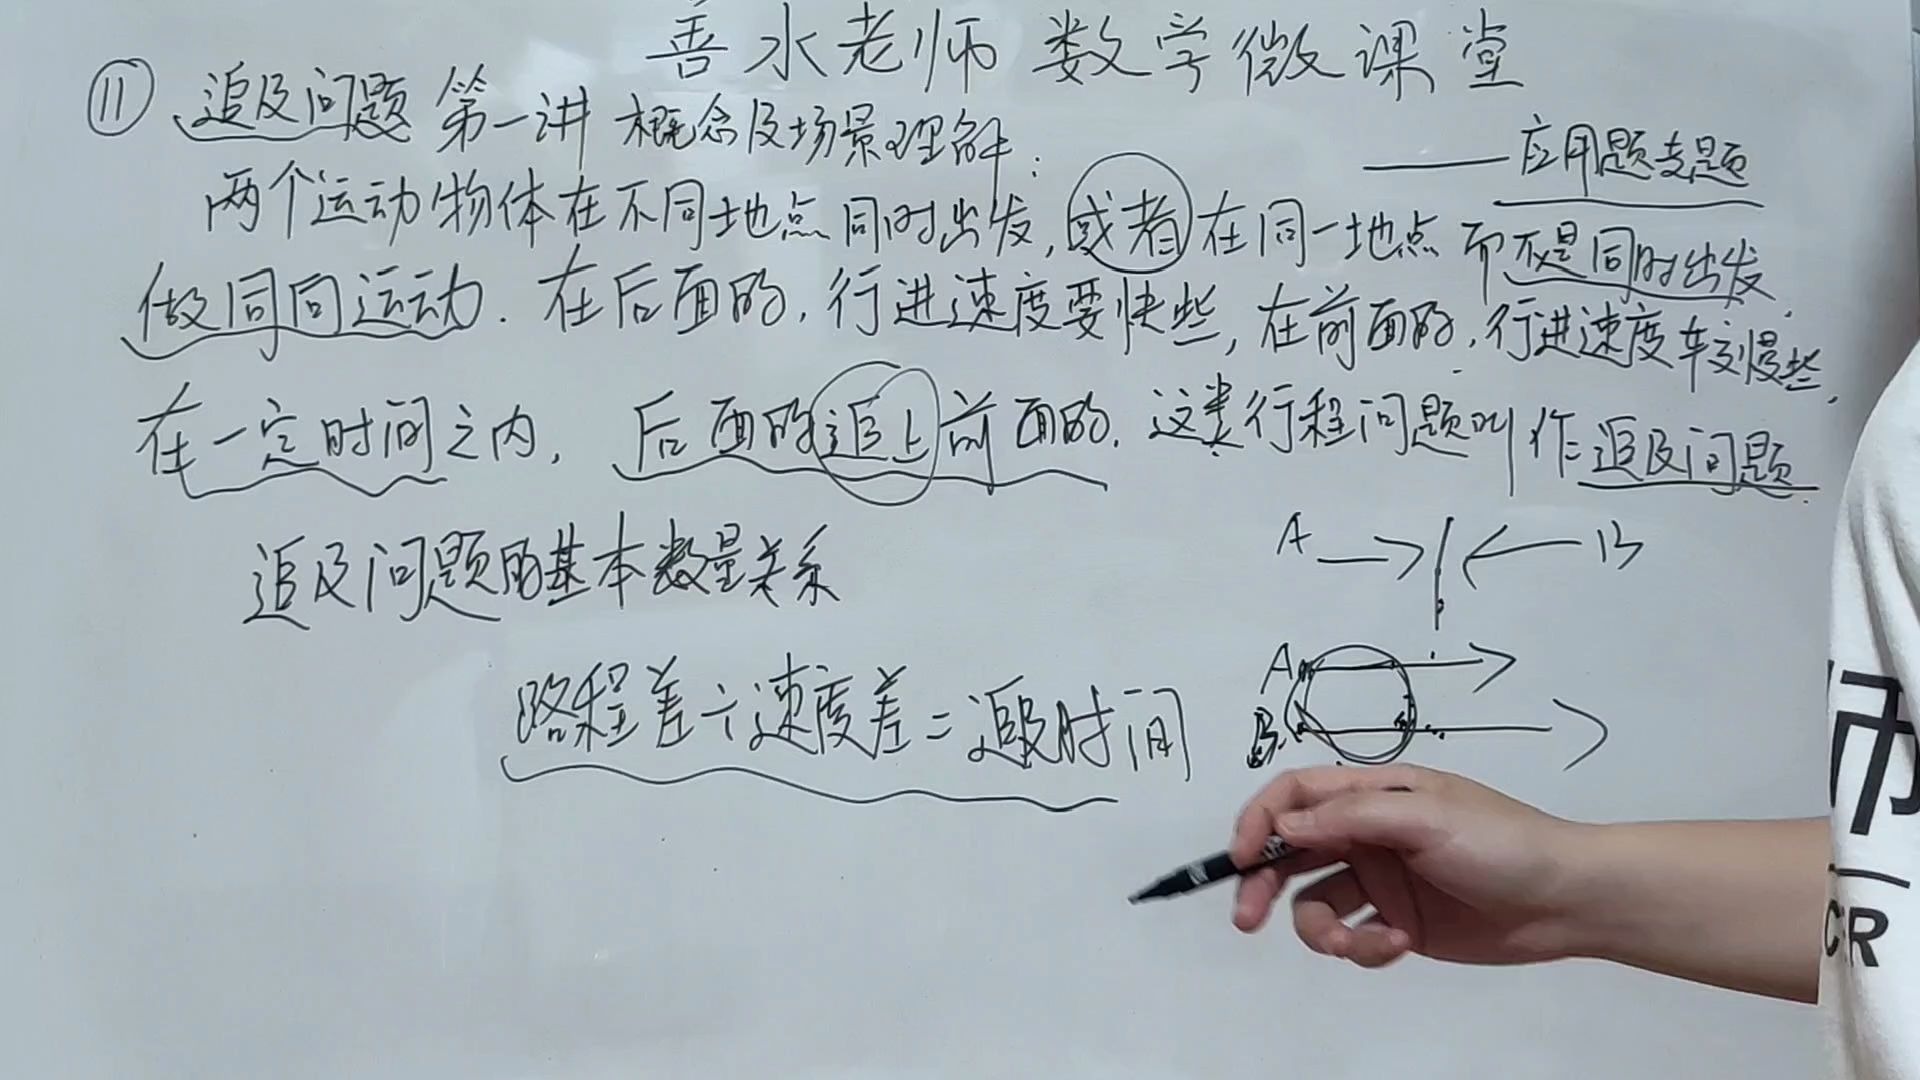 善水老师 数学微课堂
⑪ 追及问题 第一讲 概念及场景理解:
——应用题专题
两个运动物体在不同地点同时出发,或者在同一地点而不是同时出发
做同向运动.在后面的,行进速度要快些,在前面的,行进速度车交慢些,
在一定时间之内,后面的追上前面的.这类行程问题叫作追及问题.
A B
追及问题的基本数量关系
A
路程差÷速度差=追及时间
B
CR